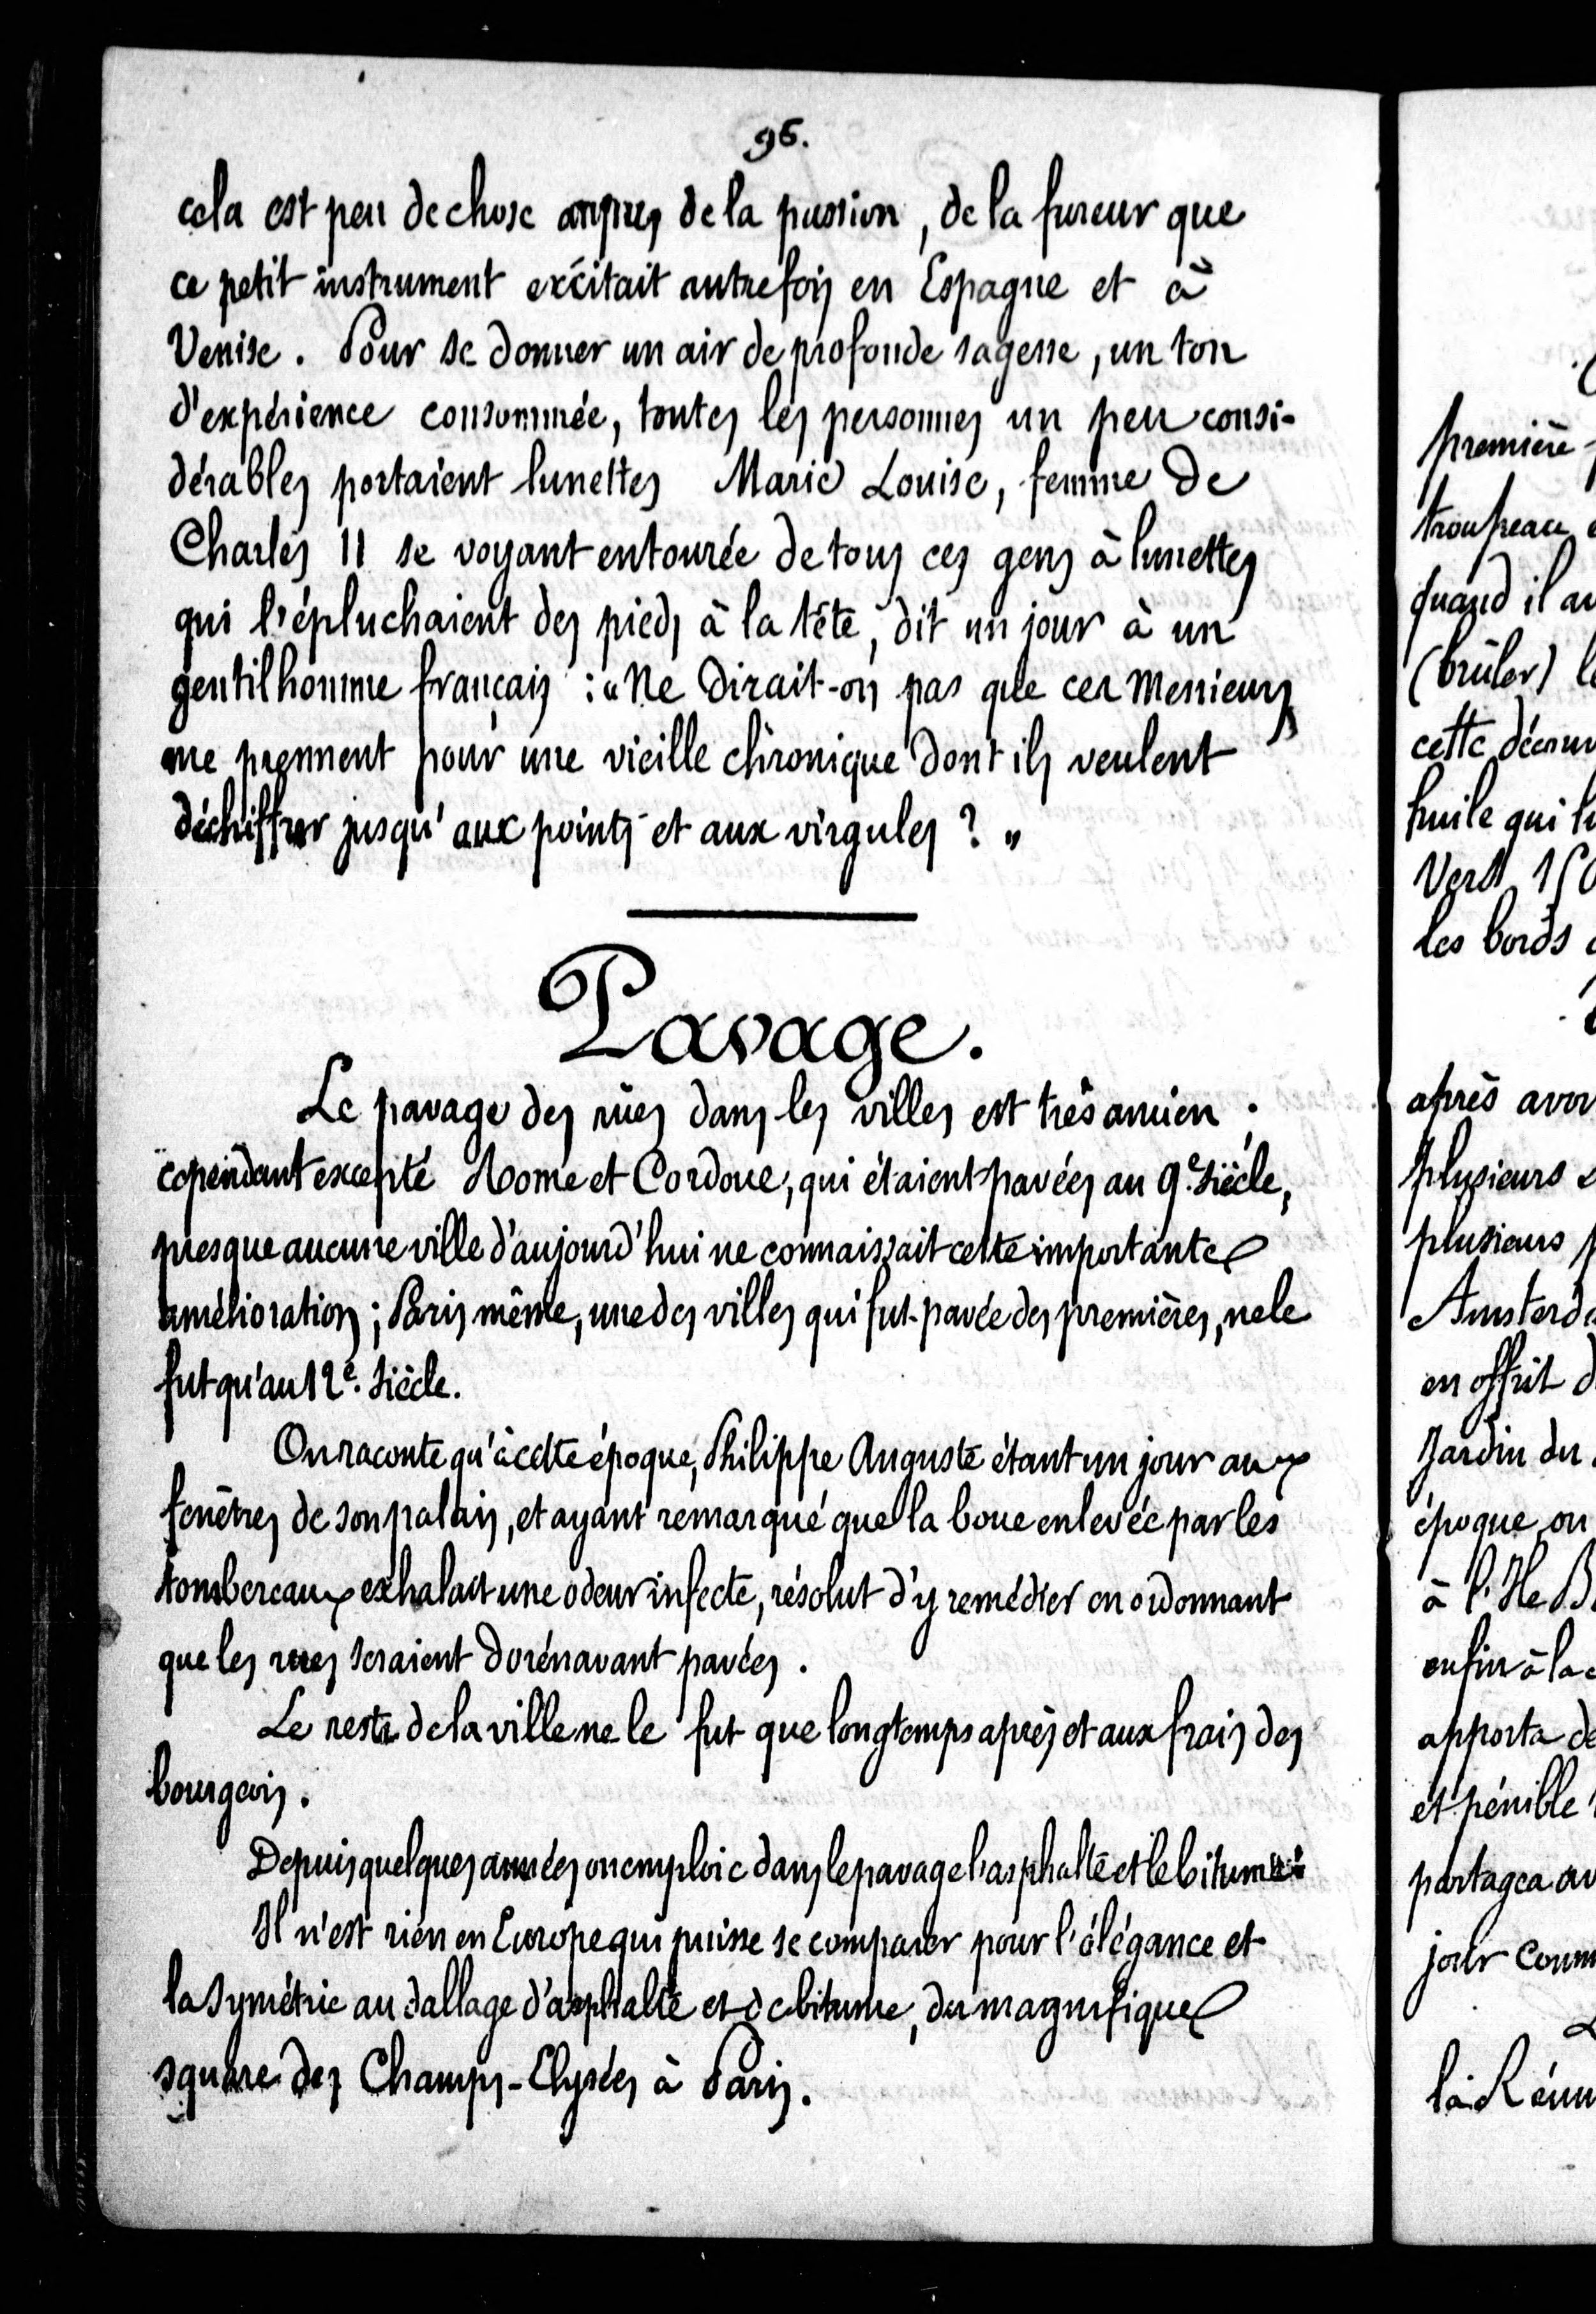 96.
cela est peu de chose auprès de la passion, de la fureur que
ce petit instrument excitait autrefois en Espagne et à
Venise. Pour se donner un air de profonde sagesse, un ton
d'expérience consommée, toutes les personnes un peu consi-
dérables portaient lunettes Marie Louise, femme de
Charles II se voyant entourée de tous ces gens à lunettes
qui l'épluchaient des pieds à la tête, dit un jour à un
gentilhomme français : « Ne dirait-on pas que ces Messieurs
me prennent pour une vieille chronique dont ils veulent
déchiffrer jusqu'aux points et aux virgules ? »
Pavage.
Le pavage des rues dans les villes est très ancien ;
cependant excepté Rome et Cordoue, qui étaient pavées au 9e. siècle,
presque aucune ville d'aujourd'hui ne connaissait cette importante
amélioration ; Paris même, une des villes qui fut pavée des premières, ne le
fut qu'au 12e. siècle.
On raconte qu'à cette époque, Philippe Auguste étant un jour aux
fenêtres de son palais, et ayant remarqué que la boue enlevée par les
tombereaux exhalait une odeur infecte, résolut d'y remédier en ordonnant
que les rues seraient dorénavant pavées.
Le reste de la ville ne le fut que longtemps après et aux frais des
bourgeois.
Depuis quelques années on emploie dans le pavage l'asphalte et le bitume.
Il n'est rien en Europe qui puisse se comparer pour l'élégance et
la symétrie au dallage d'asphalte et de bitume, du magnifique
square des Champs-Elysées à Paris.
première
troupeau
quand il
(brûler)
cette
huile qui
Vers
les bords
après
plusieurs
plusieurs
en offrit
Jardin du
époque on
à l'Ile
enfin à la
apporta
et pénible
partagea
jour
la